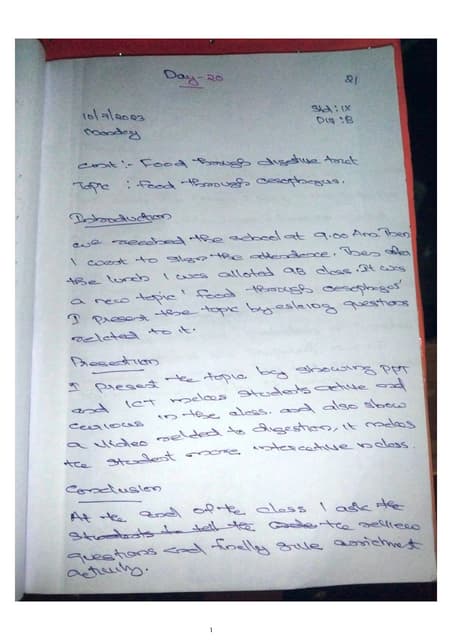 Day-20
21
10/7/2023
Std : IX
Monday
Div : B
Unit :- Food through digestive tract
Topic : Food through oesophagus.
Introduction
We reached the school at 9.00 Am. Then
I went to sign the attendence. Then after
the lunch I was alloted 9B class. It was
a new topic 'food through oesophagus'
I present the topic by asking questions
related to it.
Presention
I present the topic by showing PPT
and ICT makes students active and
curious in the class. and also show
a video related to digestion, it makes
the student more interactive in class.
Conclusion
At the end of the class I ask the
students to tell the the review
questions and finally give enrichment
activity.
1